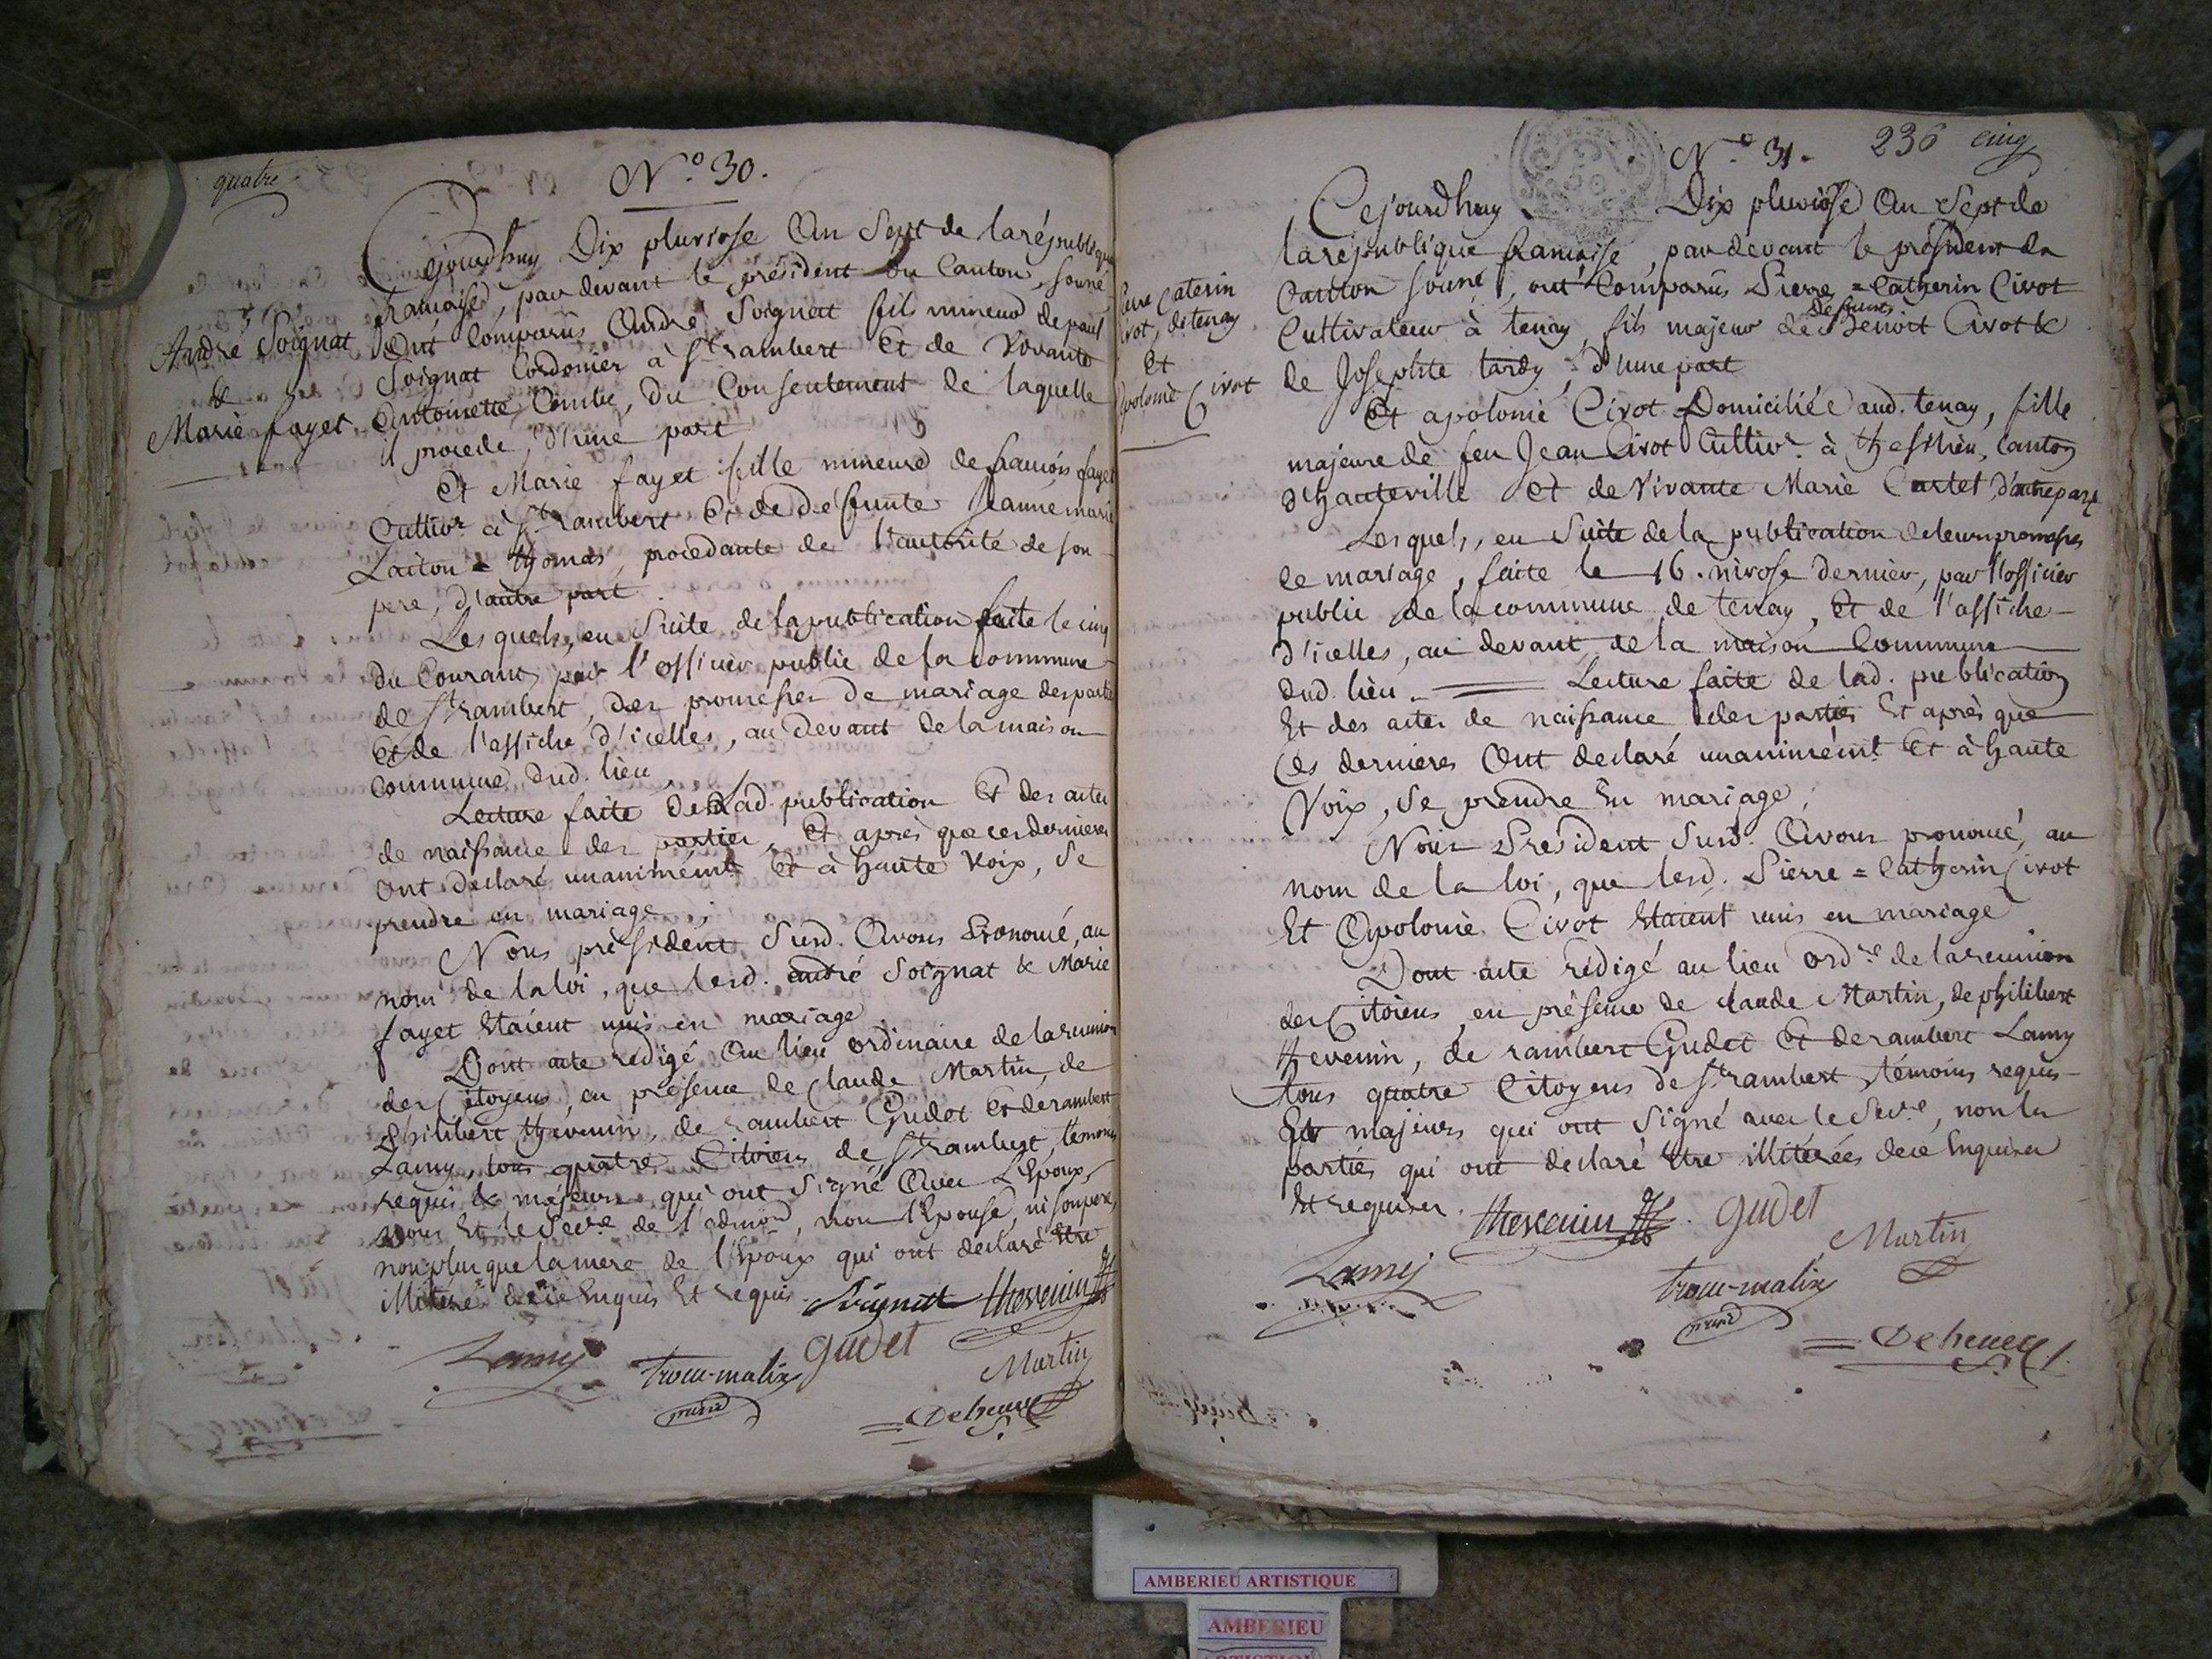 quatre
N.º 30.
Cejourd'huy Dix pluviose An Sept de la république
francaise, par devant le président du Canton, souné
André Soignat
&
Marie fayet
Ont Comparus André Soignat fils mineur de paul
Soignat Cordonier à St rambert Et de Vivante
Antoinette, du Consentement de laquelle
il procede, d'une part
Et Marie fayet fille mineure de francois fayet
Cultivr. à St rambert Et de Defunte Jeanne marie
Laiton = thomas, procedante de l'autorité de son
pere, d'autre part.
Lesquels, en Suite de la publication faite le cinq
du Courant, par l'officier public de la commune
de St rambert, des promesses de mariage des parties
Et de l'affiche d'icelles, au devant de la maison
commune dud. lieu
Lecture faite de Lad. publication Et des actes
de naissance des parties, Et après que ces dernieres
ont declaré unanimémt. Et à haute voix, se
prendre en mariage;
Nous président Susd. Avons Prononcé, au
nom de la loi, que lesd. andré Soignat & Marie
fayet Etaient unis en mariage
Dont acte redigé Au lieu ordinaire de la reunion
des Citoyens, en présence de Claude Martin, de
Philibert thevenin, de rambert Gudet Et de rambert
Lamy, tous quatre Citoiens de St rambert, témoins
requis & majeurs qui ont Signé Avec L'Epoux,
Nous Et le Secre. de l'admon, non l'Epouse, ni son pere,
non plus que la mere de l'Epoux qui ont declaré Etre
illiterés de ce Enquis Et requis.
Soignat thevenin
Lamy troccu-malix gudet Martin
présid
Deheuer
N.º 31. 236 cinq
Cejourdhuy Dix pluviose An Sept de
la republique francaise, par devant le president du
Pierre Caterin
Civot, de tenay
Et
Apolonie Civot
Canton souné, ont Comparus Pierre = Catherin Civot
Cultivateur à tenay, fils majeur de defunts Benoit Civot &
de Josephte tardy, d'une part
Et apolonie Civot Domiciliée aud. tenay, fille
majeure de feu Jean Civot Cultivr. à thesilieu, Canton
d'hauteville Et de Vivante Marie Cartet d'autre part
Lesquels, en Suite de la publication de leurs promesses
de mariage, faite le 16. nivose dernier, par l'officier
public de la commune de tenay, Et de l'affiche
d'icelles, au devant de la maison Commune
dud. lieu. Lecture faite de lad. publication
Et des actes de naissance des parties Et après que
Ces dernieres Ont declaré unanimémt. Et à haute
Voix, se prendre En mariage;
Nous President Susd. Avons prononcé, au
nom de la loi, que lesd. Pierre = Catherin Civot
Et Apolonie Civot Etaient unis en mariage
Dont acte rédigé au lieu ordre. de la reunion
des Citoiens, en présence de claude Martin, de philibert
thevenin, de rambert Gudet Et de rambert Lamy
tous quatre Citoyens de St rambert, témoins requis
Et majeurs qui ont Signé avec le Secre., non les
parties qui ont declaré Etre illiterées de ce Enquises
Et requises.
thevenin gudet
Lamy Martin
troccu-malix
présid
Deheuer
AMBERIEU ARTISTIQUE
AMBERIEU
ARTISTIQUE